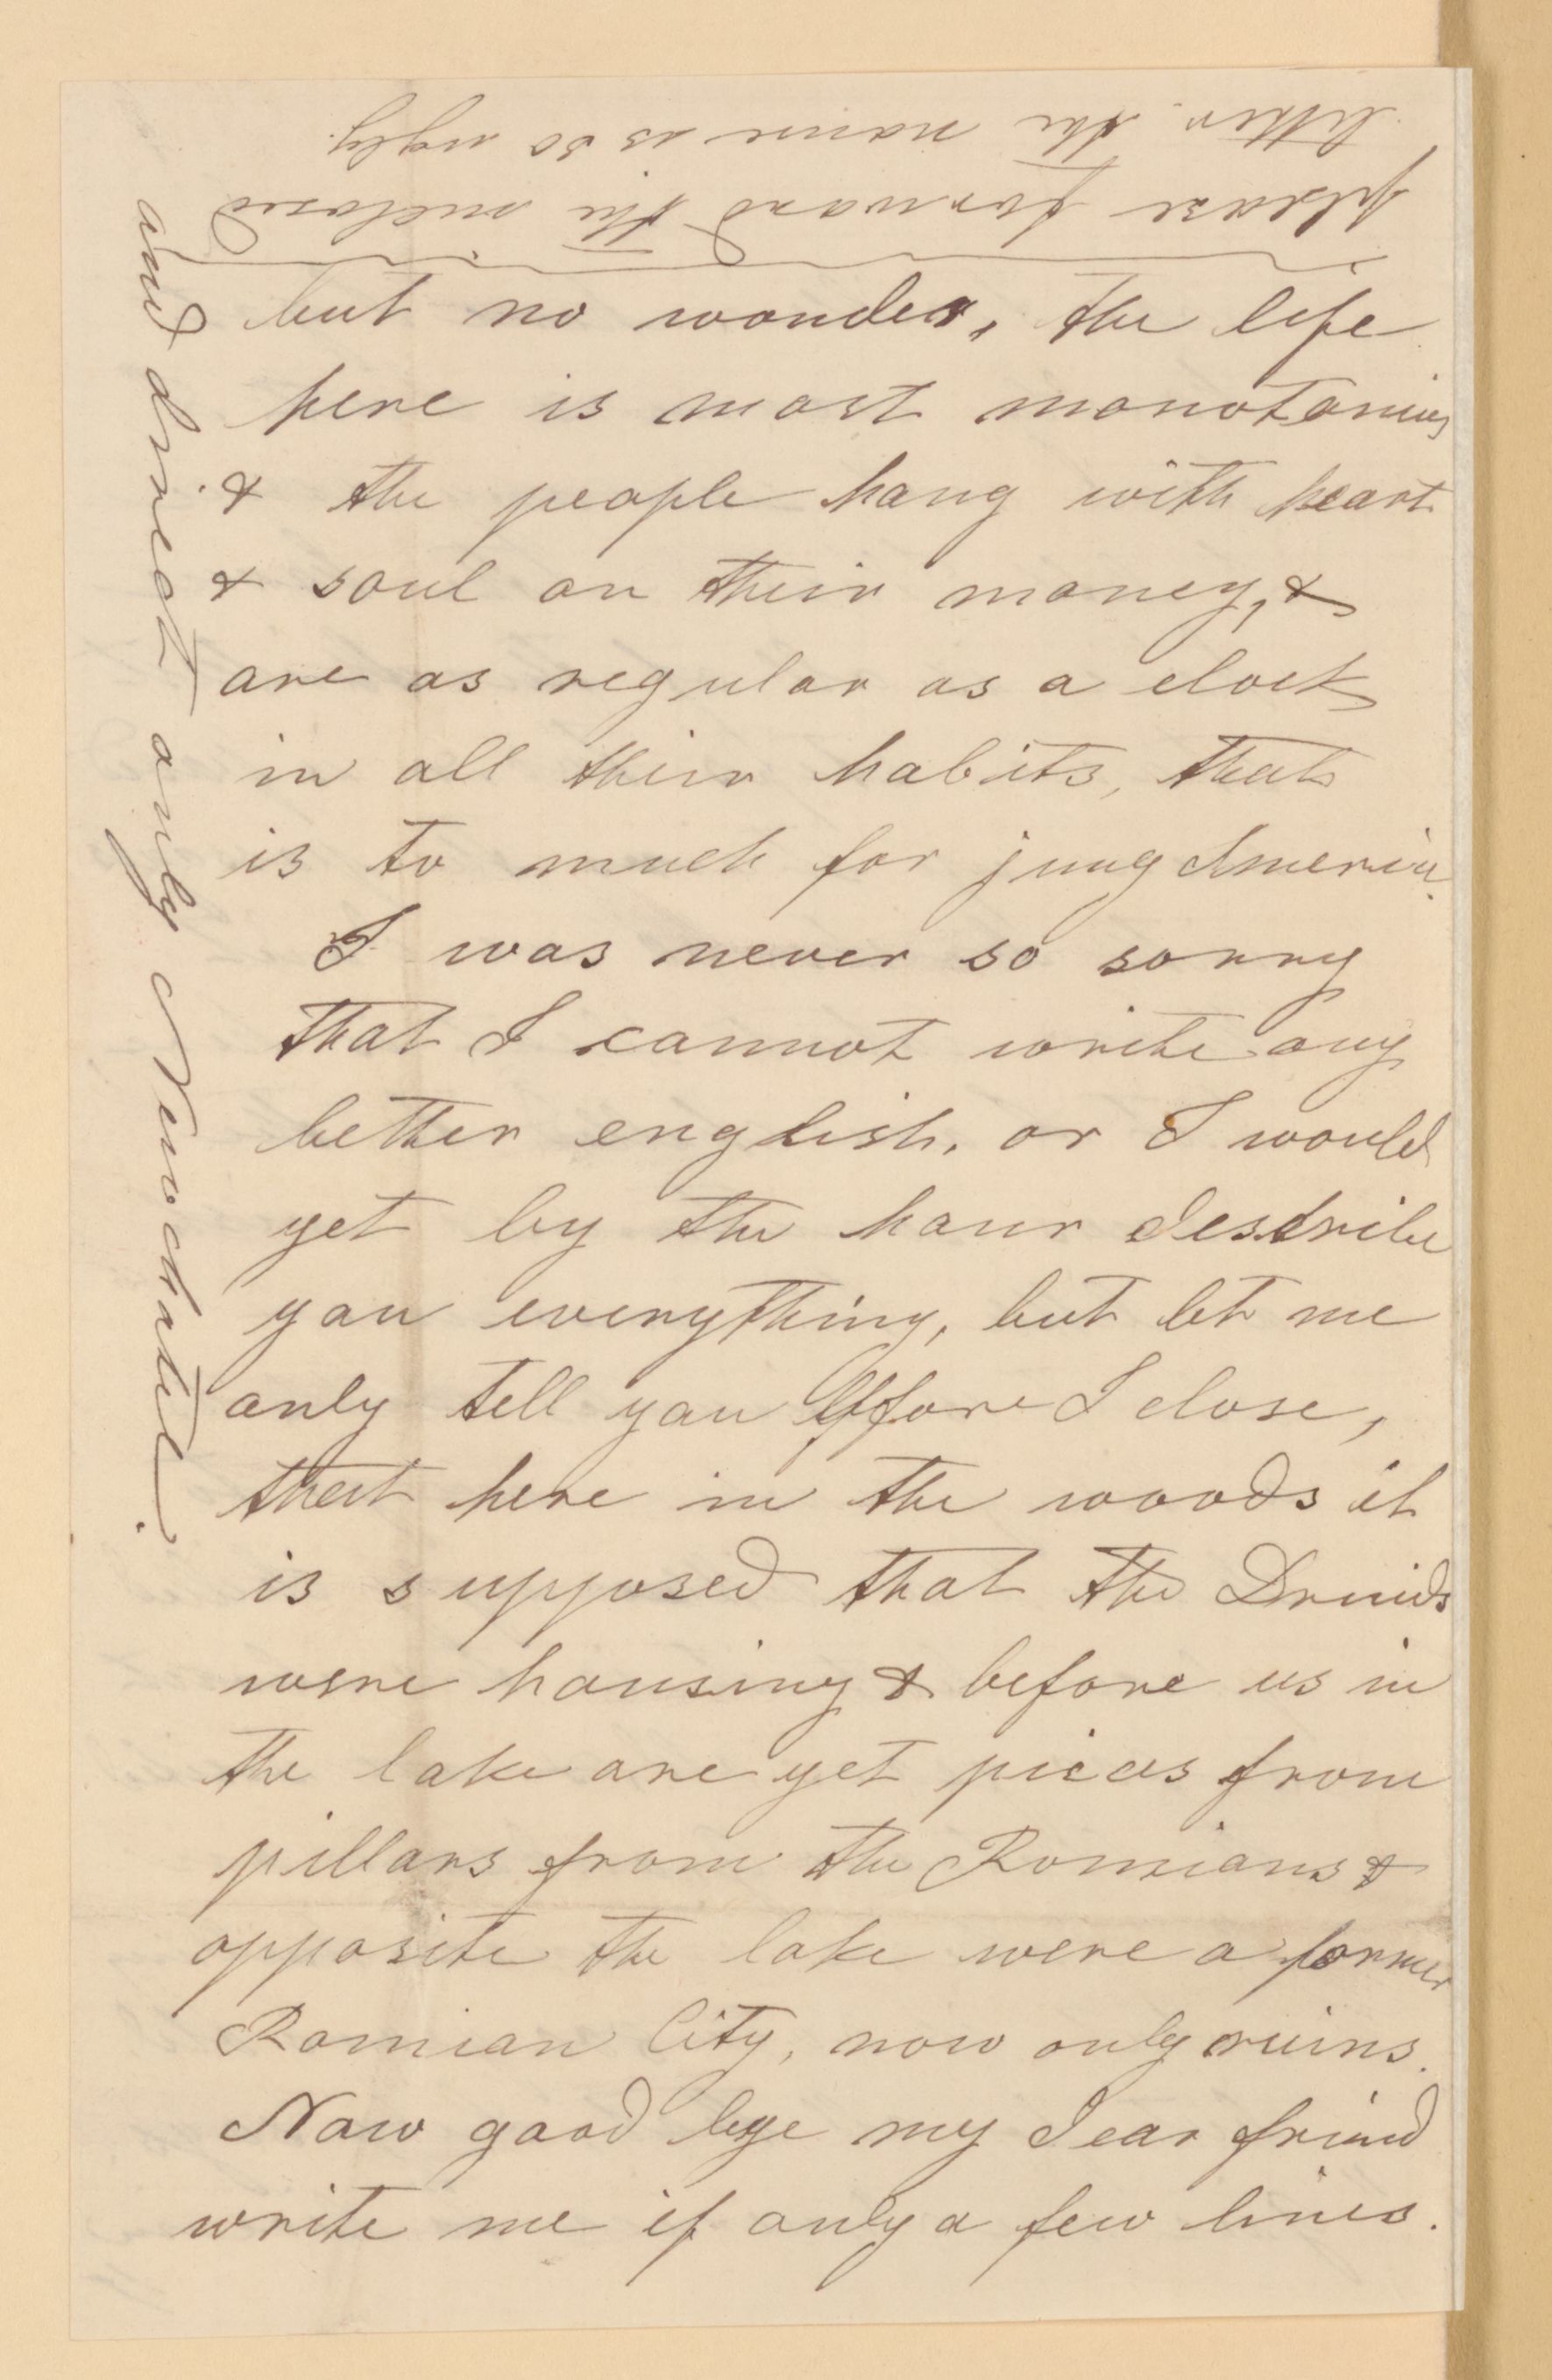 but no wonder, the life
here is most monotonius
& the people hang with heart
& soul on their money, &
are as regular as a clock
in all their habits, that
is to much for jung America.
I was never so sorry
that I cannot write any
better english, or I would
yet by the hour describe
you everything, but let me
only tell you before I close,
that here in the woods it
is supposed that the Druids
were housing & before us in
the lake are yet pieces from
pillars from the Romians &
opposite the lake were a former
Romian City, now only ruins.
Now good bye my dear friend
write me if only a few lines.
and direct only Neuchatel.
please forward the inclosed
letter. the name is so ugly.